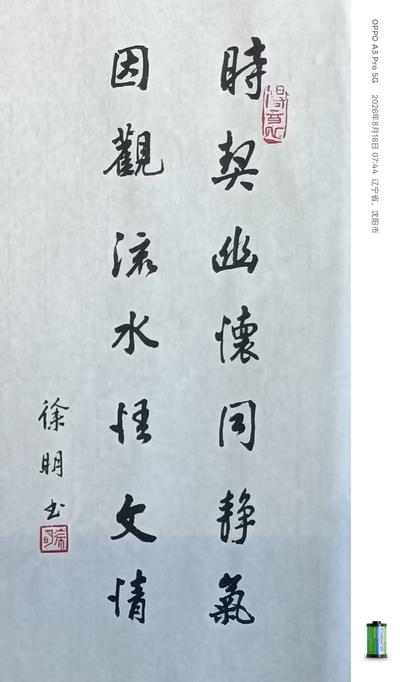 時契幽懷同静氣
因觀流水悟文情
徐明书
OPPO A3 Pro 5G 2026年8月18日 07:44 辽宁省，沈阳市